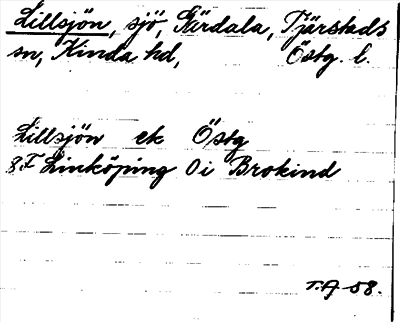 Lillsjön, sjö, Gärdala, Tjärstads
sn, Kinda hd, Östg. l.
Lillsjön ek Östg
8F Linköping 0i Brokind
T.A 58.